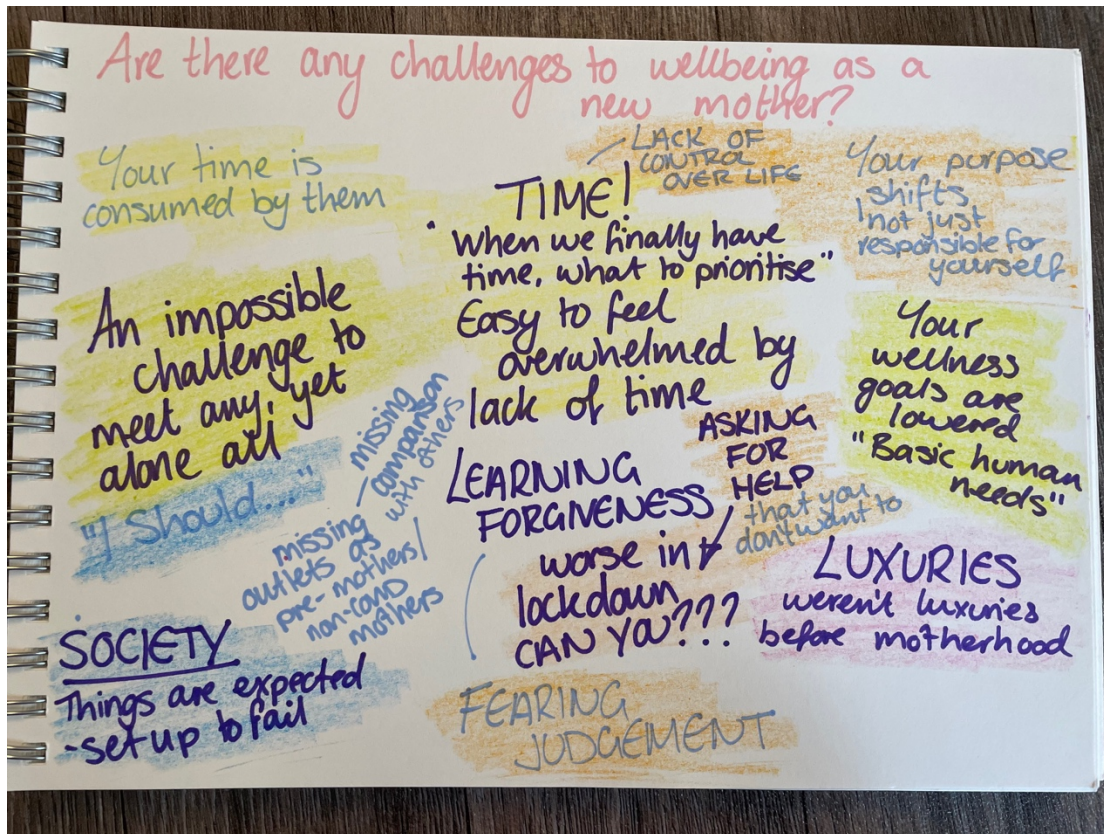 Are there any challenges to wellbeing as a
new mother?
Your time is
consumed by them
LACK OF
CONTROL
OVER LIFE
TIME!
"When we finally have
time, what to prioritise"
Easy to feel
overwhelmed by
lack of time
Your purpose
shifts
not just
responsible for
yourself
An impossible
challenge to
meet any, yet
alone all
Your
wellness
goals are
lowered
"Basic human
needs"
"I Should..."
- missing
comparison
with others
missing
outlets as
pre-mothers/
non-COVID
mothers
LEARNING
FORGIVENESS
ASKING
FOR
HELP
that you
don't want to
worse in
lockdown
CAN YOU???
LUXURIES
weren't luxuries
before motherhood
SOCIETY
Things are expected
- set up to fail
FEARING
JUDGEMENT